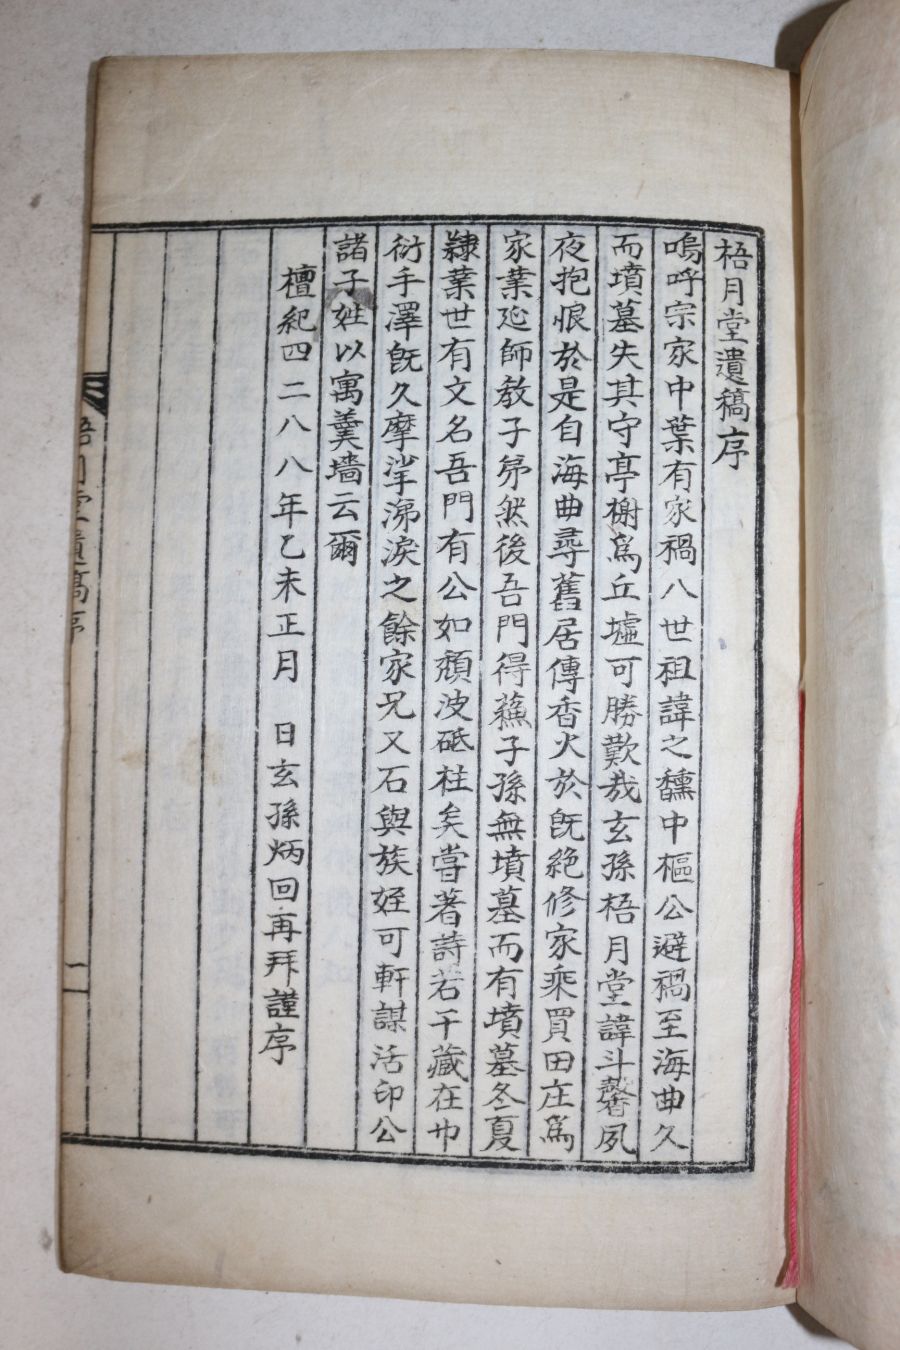 梧月堂遺稿序
嗚呼宗家中葉有家禍八世祖諱之馩中樞公避禍至海曲久
而墳墓失其守亭榭爲丘墟可勝歎哉玄孫梧月堂諱斗馨夙
夜抱恨於是自海曲尋舊居傳香火於旣絶修家乘買田庄爲
家業延師敎子弟然後吾門得蘓子孫無墳墓而有墳墓冬夏
隸業世有文名吾門有公如頹波砥柱矣嘗著詩若干藏在巾
衍手澤旣久摩挲涕淚之餘家兄又石與族姪可軒謀活印公
諸子姓以寓羹墻云爾
檀紀四二八八年乙未正月 日玄孫炳回再拜謹序
梧月堂遺稿序
一